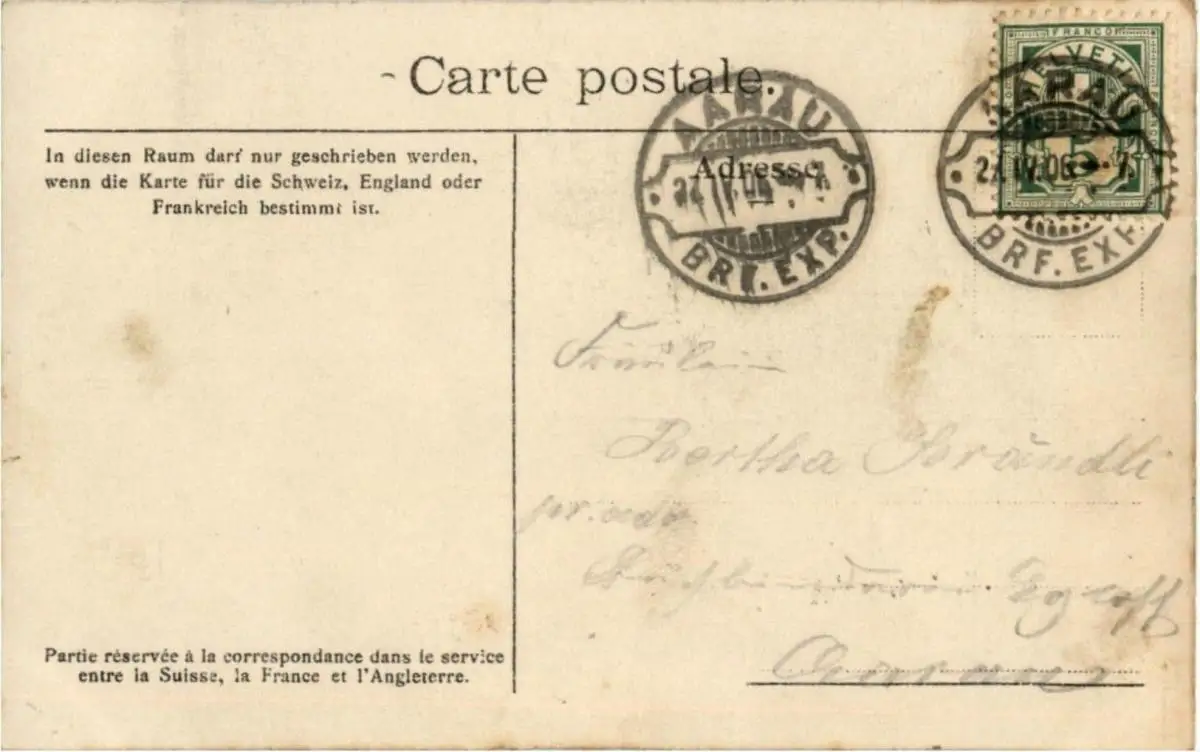 Carte postale.
FRANCO
HELVETIA
5
AARAU
27.IV.06
BRF. EXP.
AARAU
27.IV.06
BRF. EXP.
Adresse
In diesen Raum darf nur geschrieben werden,
wenn die Karte für die Schweiz, England oder
Frankreich bestimmt ist.
Fräulein
Bertha Brändli
Buchbinderei Egloff
Aarau
Partie réservée à la correspondance dans le service
entre la Suisse, la France et l'Angleterre.